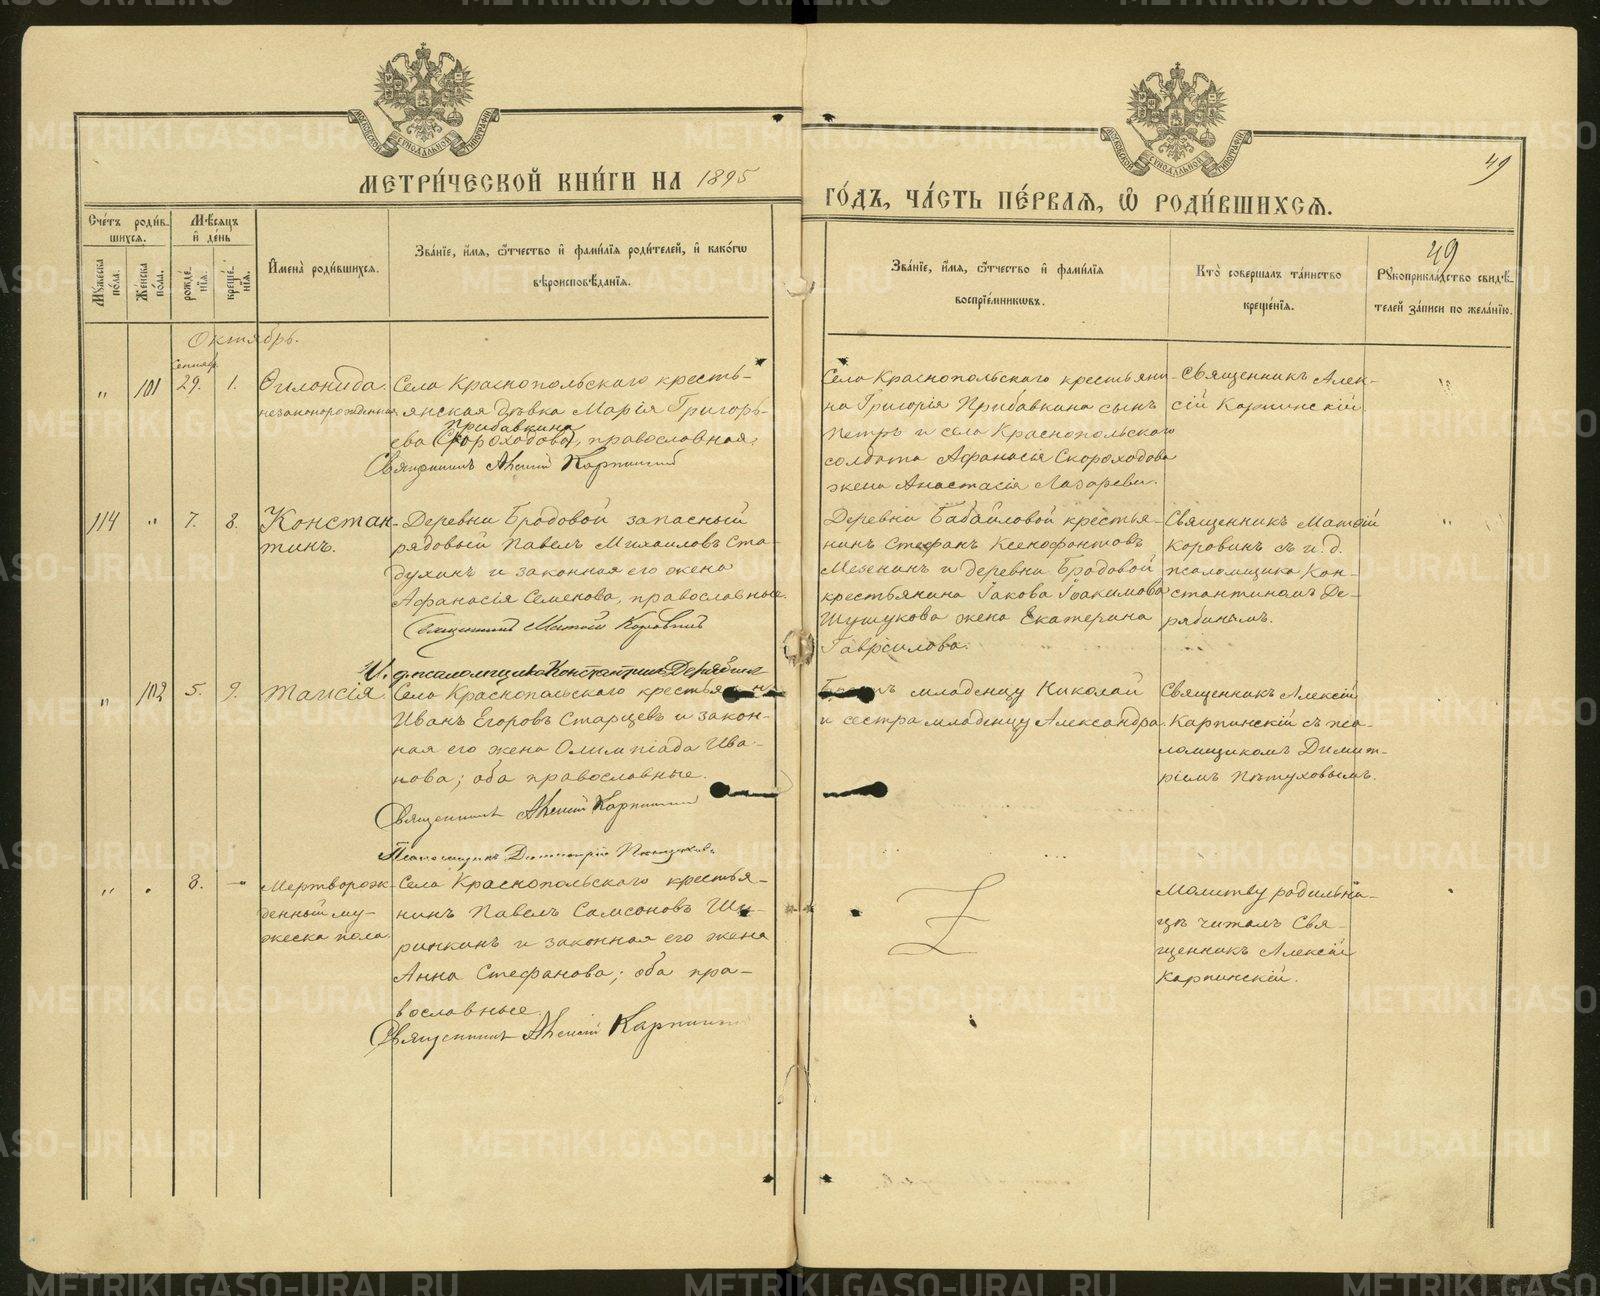 МЕТРИ́ЧЕСКОЙ КНИ́ГИ НА 1895
ГО́ДЪ, ЧА́СТЬ ПЕ́РВАЯ, Ѿ РОДИ́ВШИХСЯ.
49
49
Сче́тъ роди́в-
шихся.
Мужеска по́ла.
Же́нска по́ла.
Мѣ́сяцъ
и де́нь
рожде́нїя.
креще́нїя.
Имена̀ роди́вшихся.
Зва́нїе, и́мя, ѻ́тчество и фами́лїя роди́телей, и како́гѡ
вѣроисповѣ́данїя.
Зва́нїе, и́мя, ѻ́тчество и фами́лїя
воспрїе́мникѡвъ.
Кто̀ соверша́лъ та́инство
креще́нїя.
Рукоприкла́дство свидѣ́-
телей за́писи по жела́нїю.
Октябрь.
" 101 Сентяб. 29. 1.
Филонида.
незаконорожденная
Села Краснопольскаго кресть-
янская дѣвка Марія Григорь-
Прибавкина
ева (Скороходова), православная.
Священникъ Алексій Карпинскій
Села Краснопольскаго крестьяни-
на Григорія Прибавкина сынъ
Петръ и села Краснопольскаго
солдата Афанасія Скороходова
жена Анастасія Лазарева.
Священникъ Алек-
сій Карпинскій
114 " 7. 8.
Констан-
тинъ.
Деревни Бродовой запасный
рядовый Павелъ Михаиловъ Ста-
духинъ и законная его жена
Афанасія Семенова, православные.
Священникъ Матѳій Коровинъ
И. д. псаломщика Константинъ Дерябинъ
Деревни Бабаиловой крестья-
нинъ Стефанъ Ксенофонтовъ
Мезенинъ и деревни Бродовой
крестьянина Іакова Іоакимова
Шушукова жена Екатерина
Гавріилова.
Священникъ Матѳій
Коровинъ съ и. д.
псаломщика Кон-
стантиномъ Де-
рябинымъ.
" 102 5. 9.
Таисія.
Села Краснопольскаго крестьянинъ
Иванъ Егоровъ Старцевъ и закон-
ная его жена Олимпіада Ива-
нова; оба православные.
Священникъ Алексій Карпинскій
Псаломщикъ Димитрій Пѣтуховъ
Братъ младенцу Николай
и сестра младенцу Александра.
Священникъ Алексій
Карпинскій съ пса-
ломщикомъ Димит-
ріемъ Пѣтуховымъ.
" 8. —
Мертворож-
денный му-
жеска пола.
Села Краснопольскаго крестья-
нинъ Павелъ Самсоновъ Ши-
ринкинъ и законная его жена
Анна Стефанова; оба пра-
вославные.
Священникъ Алексій Карпинскій
Молитву родильни-
цѣ читалъ Свя-
щенникъ Алексій
Карпинскій.
METRIKI.GASO-URAL.RU